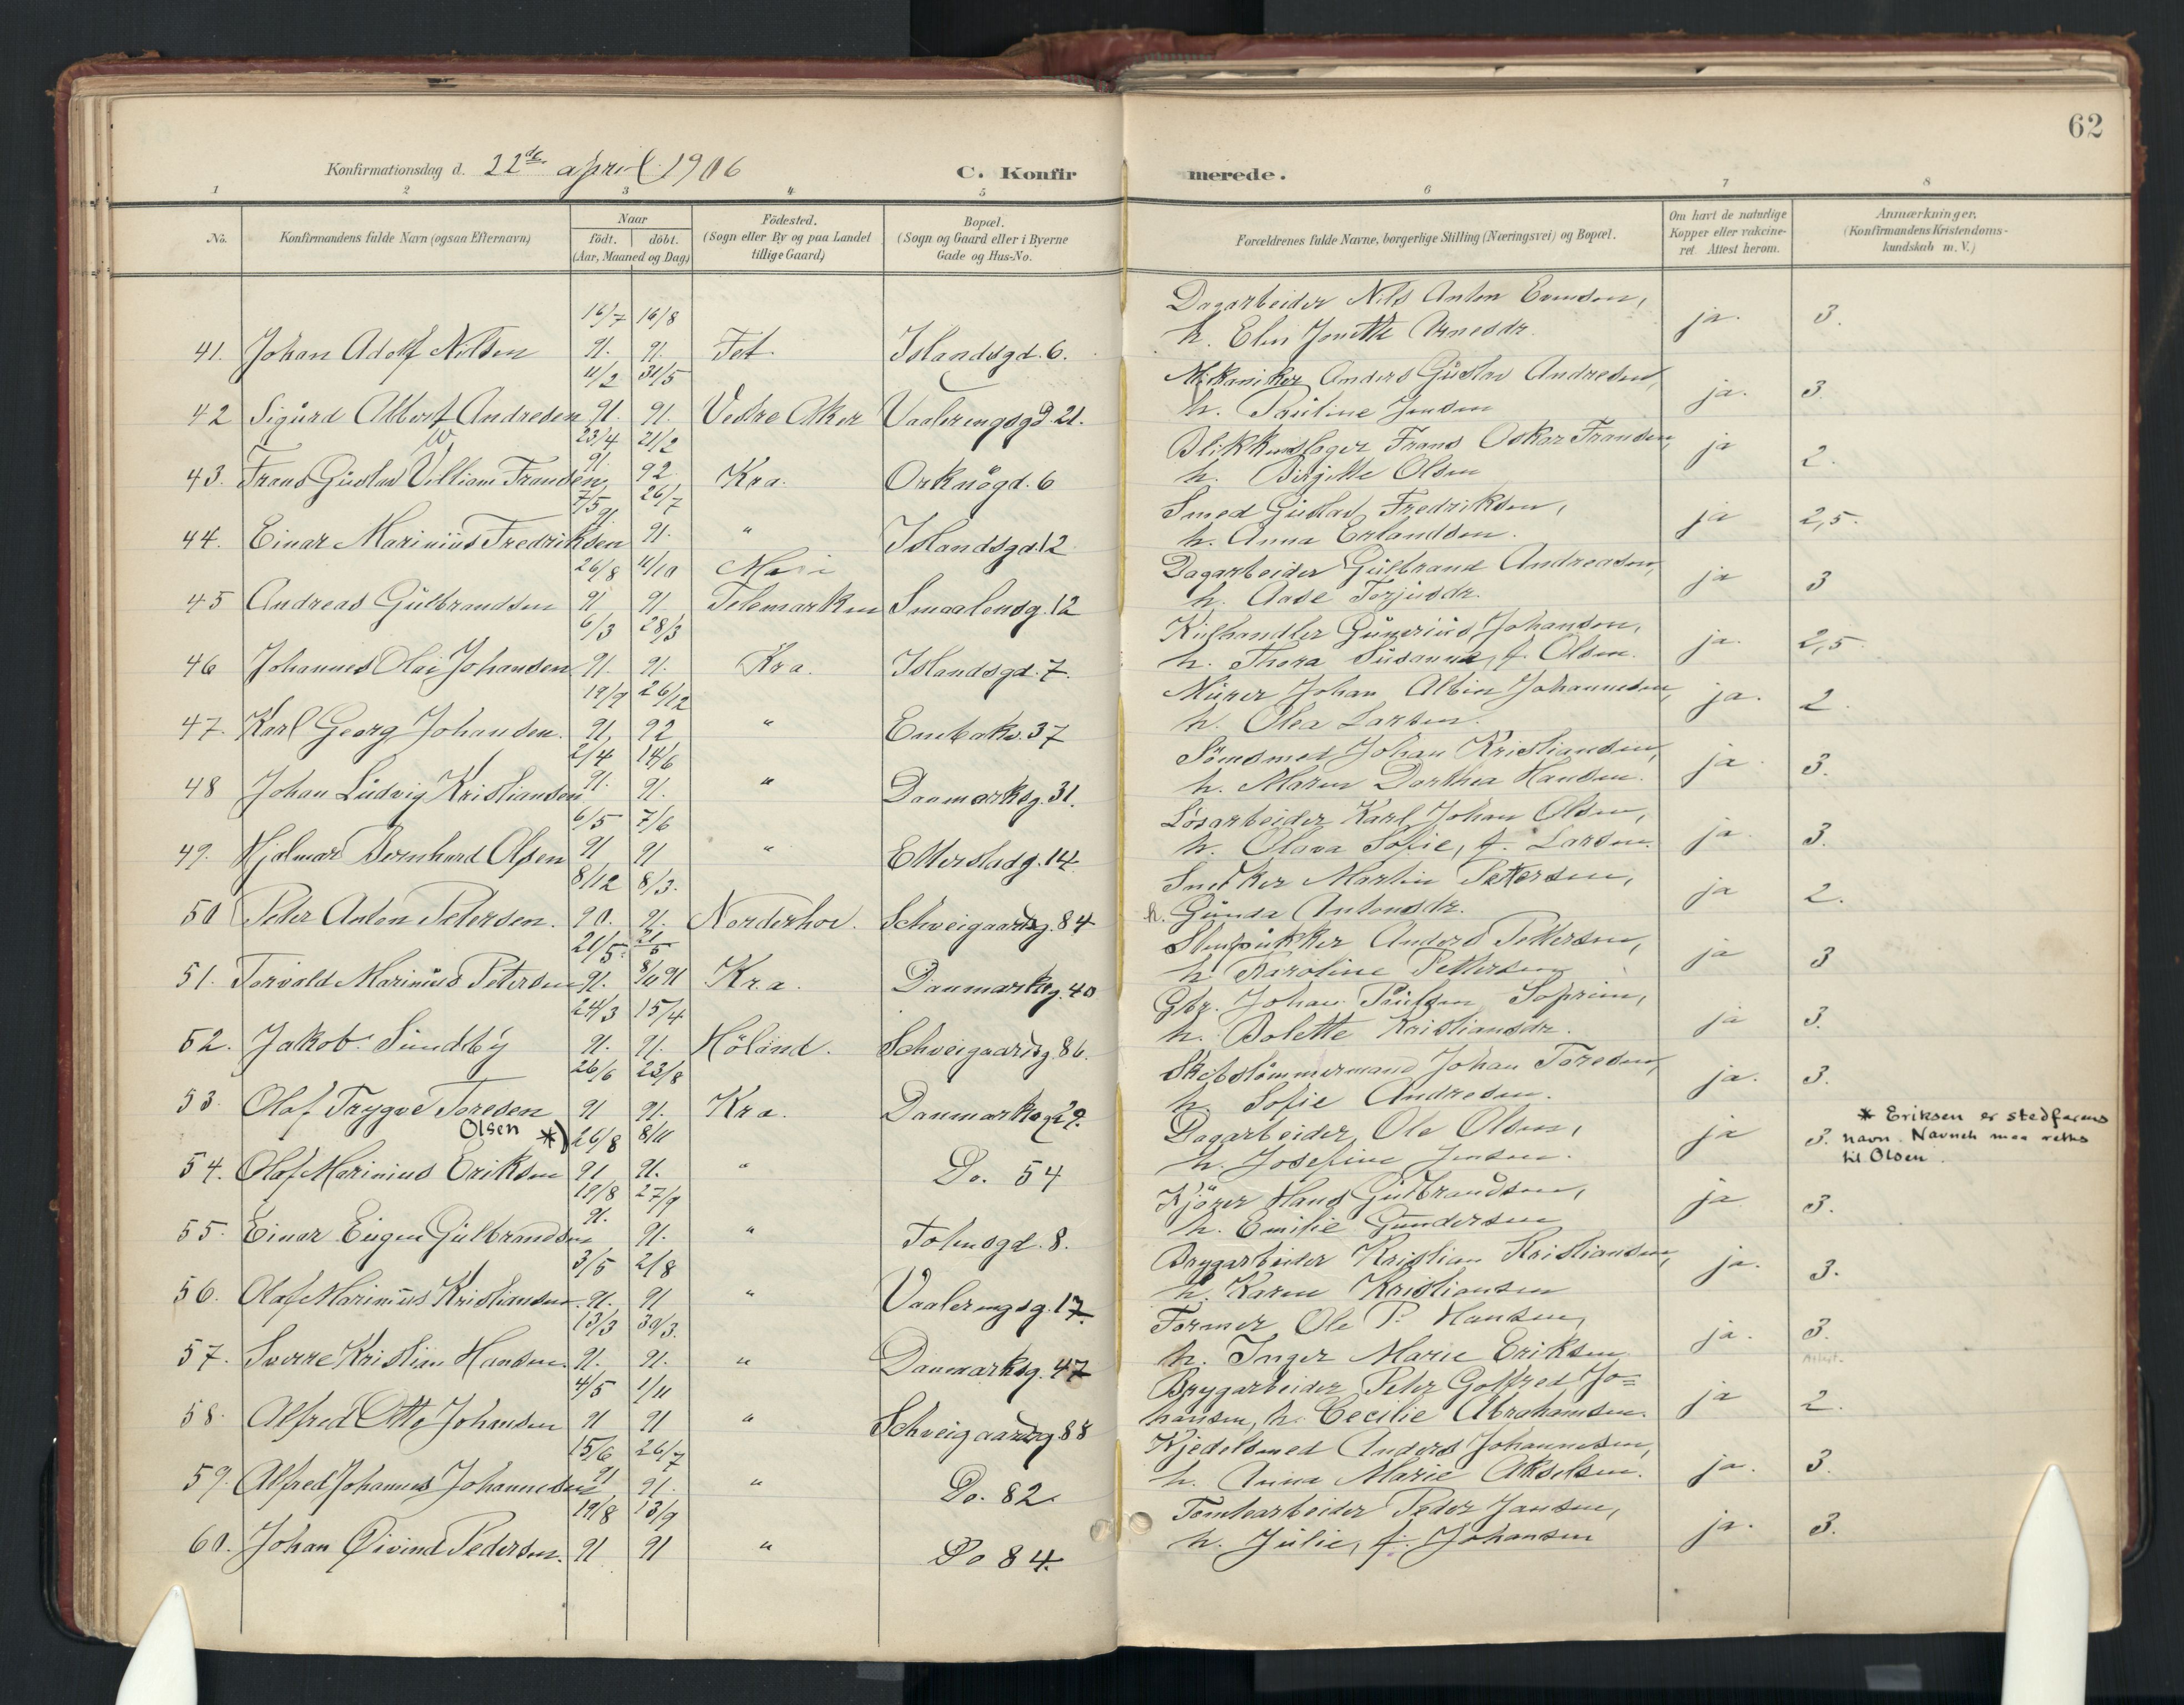 62
Konfirmationsdag d. 22de april 1906
C. Konfirmerede.
1 2 3 4 5 6 7 8
No.
Konfirmandens fulde Navn (ogsaa Efternavn)
Naar
födt. döbt.
(Aar, Maaned og Dag)
Födested.
(Sogn eller By og paa Landet
tillige Gaard)
Bopæl.
(Sogn og Gaard eller i Byerne
Gade og Hus-No.
Forældrenes fulde Navne, borgerlige Stilling (Næringsvei) og Bopæl.
Om havt de naturlige
Kopper eller vakcine-
ret. Attest herom.
Anmærkninger.
(Konfirmandens Kristendoms-
kundskab m. V.)
16/7 16/8 Dagarbeider Nils Anton Evensen,
41. Johan Adolf Nilsen 91. 91. Fet. Islandsgd. 6. h. Elen Jonette Arnesdr. ja. 3.
11/2 31/5 Mekaniker Anders Gustav Andresen,
42 Sigurd Albert Andresen 91. 91. Vestre Aker Vaalerengsgd. 21. h. Pauline Jensen ja. 3.
W
23/4 21/2 Blikkenslager Frans Oskar Fransen,
43. Frans Gustav Villiam Fransen 91. 92 Kra. Orknögd. 6 h. Birgitte Olsen ja 2.
7/5 26/7 Smed Gustav Fredriksen,
44. Einar Marinius Fredriksen 91 91. " Islandsgd. 12 h. Anna Erlandsen. ja 2,5.
26/8 11/10 Dagarbeider Gulbrand Andreasen,
45 Andreas Gulbrandsen 91 91 Telemarken Smaalensg. 12 h. Aase Torjusdr. ja 3
6/3 28/3 Kulhandler Gunerius Johansen,
46 Johannes Olai Johansen 91. 91. Kra. Islandsgd. 7. h. Thora Susanna, f. Olsen. ja. 2,5
19/9 26/12 Murer Johan Albin Johannesen,
47. Karl Georg Johansen. 91. 92 " Enebakv. 37 h. Olea Larsen. ja. 2.
2/4 14/6 Sömsmed Johan Kristiansen,
48 Johan Ludvig Kristiansen 91. 91. " Danmarksg. 31. h. Maren Dorthea Hansen. ja 3.
6/5 7/6 Lösarbeider Karl Johan Olsen,
49. Hjalmar Bernhard Olsen 91 91 " Etterstadg. 14. h. Olava Sofie, f. Larsen. ja 3.
8/12 8/3. Snedker Martin Petersen,
50 Peter Anton Petersen. 90. 91. Norderhov. Schweigaardsg. 84 h. Gunda Antonsdr. ja 2.
21/5. 21/5 Stenpukker Anders Pettersen,
51. Torvald Marinius Petersen 91. 8/11 91 Kra. Danmarksg. 40 h. Karoline Pettersen ja 3
24/3 15/4 Gbr. Johan Paulsen Soprim,
52. Jakob Sundby 91. 91. Höland. Schweigaardsg. 86. h. Bolette Kristiansdr. ja 3.
26/6 23/8 Skibstömmermand Johan Toresen,
53. Olaf Trygve Toresen 91 91. Kra. Danmarksg. 29. h. Sofie Andresen. ja. 3.
Olsen *) 26/8 8/11 Dagarbeider Ole Olsen,
54. Olaf Marinius Eriksen 91 91. " Do. 54 h. Josefine Jensen. ja 3.
* Eriksen er stedfarens
navn. Navnet maa rettes
til Olsen.
19/8 27/9 Kjörer Hans Gulbrandsen,
55. Einar Eugen Gulbrandsen 91. 91. " Tolensgd. 8. h. Emilie Gundersen ja 3.
3/5 2/8 Brygarbeider Kristian Kristiansen,
56. Olaf Marinius Kristiansen. 91. 91 " Vaalerengsg. 17. h. Karen Kristiansen ja. 3.
13/3 30/3. Former Ole P. Hansen,
57. Sverre Kristian Hansen. 91. 91. " Danmarksg. 47 h. Inger Marie Eriksen ja. 3.
Attest.
4/5 1/11 Brygarbeider Peter Gotfred Jo-
58. Alfred Otto Johansen 91 91 " Schweigaardsg. 88 hansen, h. Cecilie Abrahamsen. ja 2.
15/6 26/7 Kjedelsmed Anders Johannesen,
59. Alfred Johannes Johannesen 91 91. " Do. 82. h. Anna Marie Akselsen. ja. 3.
19/8 13/9 Tomtearbeider Peder Jansen,
60. Johan Øivind Pedersen. 91 91 " Do 84. h. Julie, f. Johansen ja. 3.